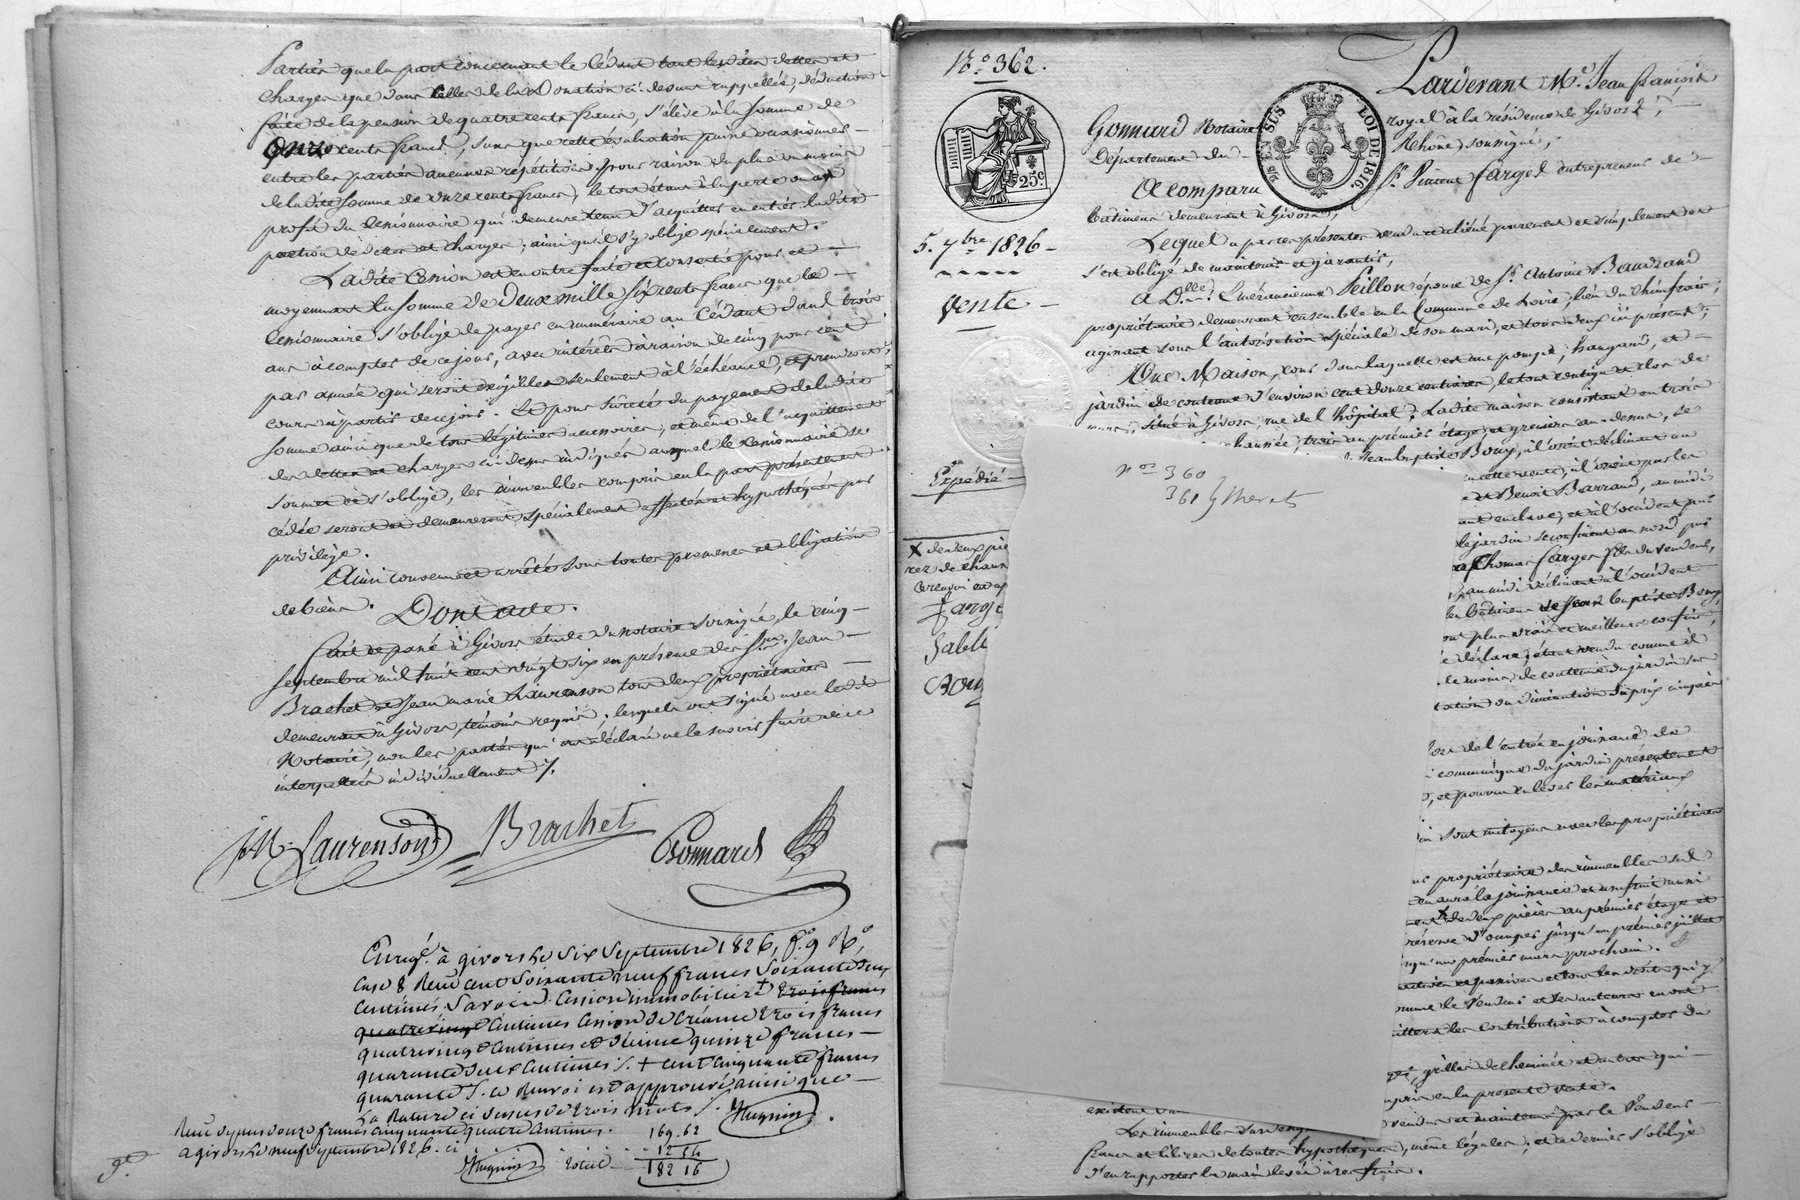 Parties que la part concernant le Cédant tout les dites dettes et
charges que dans celles de la Donation ci dessus rappellée, déduction
faite de la pension de quatre cents francs, s'élève à la somme de
onze cents francs, sans que cette évaluation puisse occasionner
entre les parties aucunes répétitions pour raison du plus ou moins
de la dite somme de onze cents francs, le tout étant à la perte ou au
profit du Cessionnaire qui demeure tenu d'acquitter en entier la dite
portion de dettes et charges, ainsi qu'il s'y oblige spécialement.
La dite Cession est en outre faite et consentie pour et
moyennant la somme de Deux mille six cents francs que le
Cessionnaire s'oblige de payer en numéraire au Cédant dans trois
ans à compter de ce jour, avec intérêts à raison de cinq pour cent
par année qui seront exigibles seulement à l'échéance, et prendront
cours à partir de ce jour. Et pour sûreté du payement de la dite
somme ainsi que de tous légitimes accessoires, et même de l'acquittement
des dettes et charges ci dessus indiquées auquel le Cessionnaire se
soumet et s'oblige, les immeubles compris en la part présentement
cédée seront et demeureront spécialement affectés et hypothéqués par
privilège.
Ainsi convenu et arrêté sous toutes promesses et obligations
de biens. Dont acte.
Fait et passé à Givors étude du notaire soussigné, le cinq
septembre mil huit cent vingt six en présence des Srs. Jean
Brachet et Jean marie Laurenson tous deux propriétaires
demeurant à Givors, témoins requis, lesquels ont signé avec le dit
Notaire, non les parties qui ont déclaré ne le savoir faire de ce
interpellées individuellement /.
J M. Laurenson Brachet Gonnard
Enregé. à givors le six Septembre 1826, fo. 9 Ro.
Case 8 Reçu cent soixante neuf francs soixante deux
centimes Savoir Cession immobilière + trois francs
quatrevingt centimes Cession de Créance trois francs
quatrevingt centimes et dixième quinze francs
quarante deux centimes /. + cent cinquante francs
quarante /. ce Renvoi est approuvé ainsi que
La Rature ci dessus de trois mots /. Hugnin
Reçu de plus douze francs cinquante quatre centimes. 169. 62
a givors le neuf Septembre 1826. ci 12 54
Hugnin total 182 16
No. 362.
525c
BIENS SUS LOI DE 1816.
5. 7bre 1826
Vente
Expédié
Pardevant Me. Jean François
Gonnard Notaire royal à la résidence de Givors,
Département du Rhône soussigné,
A comparu Sr. Vincent Farges entrepreneur de
batimens demeurant à Givors,
Lequel a par ces présentes vendu et aliéné purement et simplement et
s'est obligé de maintenir et garantir,
A Dlle. Peillon épouse de Sr. Antoine Baudrand
propriétaire demeurant ensemble en la Commune de Loire, lieu du Chinfrais,
agissant sous l'autorisation spéciale de son mari, et tous deux ici présents;
Une Maison, cour dans laquelle est une pompe, hangard, et
jardin de contenue d'environ cent douze centiares le tout contigu et clos de
murs, situé à Givors, rue de l'hôpital. La dite maison consistant en trois
chaussée, trois au premier étage et greniers au-dessus, se
Jean Baptiste Bouy, à l'orient déclinant au
en cette vente, à l'orient par les
et Benoit Barrand, au midi
ant enclave, et à l'occident par
le jardin se confinent au nord par
Thomas Farges fils du vendeur,
au midi déclinant à l'occident
les bâtimens de Jean baptiste Bouy,
ont plus vrais et meilleurs confins,
déclaré, étant vendu comme il
de moins de contenue du jardin sur
tation ou diminution du prix ci après
lors de l'entrée en jouissance de
communique du jardin présentement
, et pourra enlever les matériaux
sont mitoyens avec les propriétaires
propriétaire des immeubles sus
en aura la jouissance et usufruit aussi
ent X de deux pièces au premier étage et
réserve d'occuper jusqu'au premier juillet
squ'au premier mars prochain.
actives et passives et tous les droits qui y
omme le vendeur et ses auteurs en ont
acquittera les contributions à compter du
grilles de cheminée et autres qui
compris en la présente vente.
existent dans
Les immeubles sus vendus vendre et maintenu par le Vendeur
francs et libres de toutes hypothèques, même légales, et ce dernier s'oblige
d'en rapporter la main levée à ses frais.
X de deux piè
rez de chaus
Farge
Sabl
Bouy
nos 360
361 Y